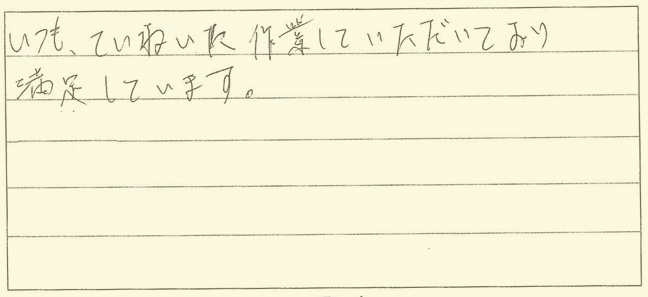 いつも、ていねいな作業していただいており
満足しています。